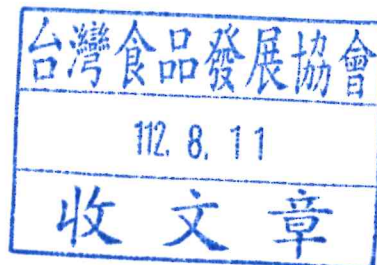 台灣食品發展協會
112. 8. 11
收文章